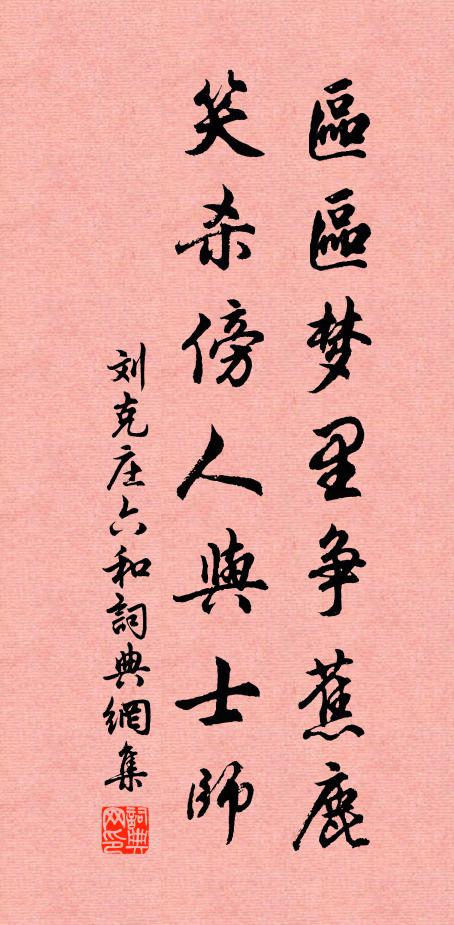 區區梦里争蕉鹿
笑杀傍人與士師
刘克庄六和詞典網集
詞典网印